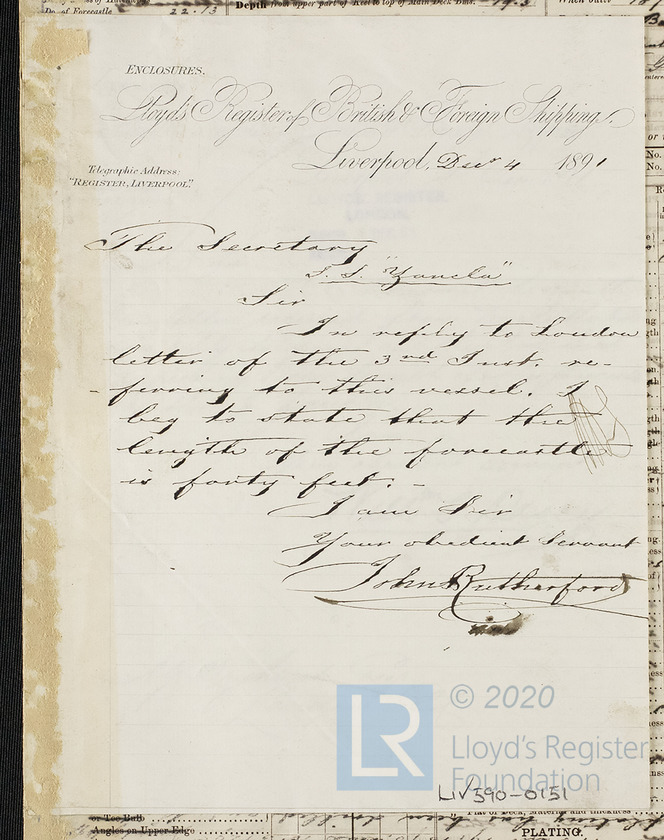 Do. of Forecastle 22.13
Depth from upper part of Keel to top of Main Deck Bms.
ENCLOSURES.
Lloyd's Register of British & Foreign Shipping.
Liverpool, Decr 4 1891
Telegraphic Address:
"REGISTER, LIVERPOOL".
The Secretary
S.S. "Yancla"
Sir
In reply to London
letter of the 3rd Inst. re-
-ferring to this vessel. I
beg to state that the
length of the forecastle
is forty feet. -
I am Sir
Your obedient Servant
John Rutherford
© 2020
LR
Lloyd's Register
Foundation
LIV390-0151
or Tee Bulb
Angles on Upper Edge
PLATING.